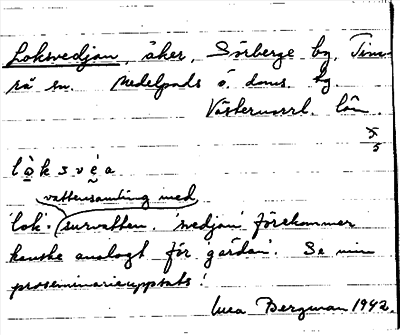 Loksvedjan, åker, Sörberge by, Timrå sn. Medelpads ö. doms. tg.
Västernorrl. län.
lò̱k s v é a
vattensamling med
'lok'. survatten. 'svedjan' förekommer
kanske analogt för 'gärdan'. Se min
proseminarieuppsats!
Bergman 1942.